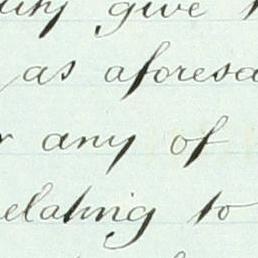 give
as aforesa
any of
elating to